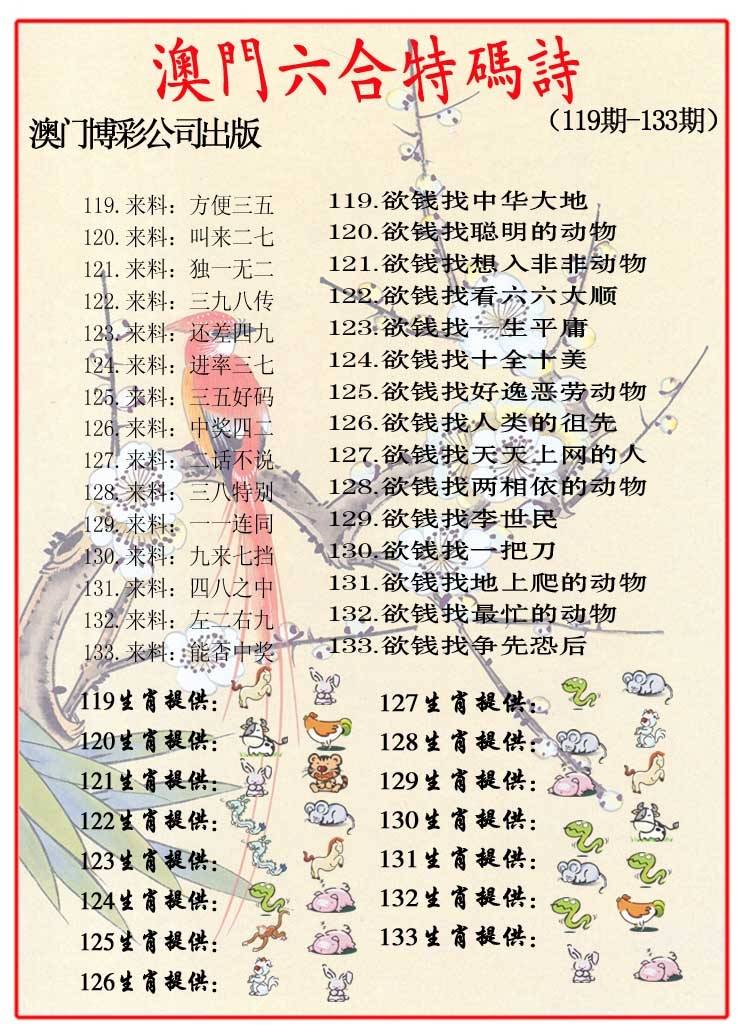 澳門六合特碼詩
澳门博彩公司出版
（119期-133期）
119.来料：方便三五
120.来料：叫来二七
121.来料：独一无二
122.来料：三九八传
123.来料：还差四九
124.来料：进率三七
125.来料：三五好码
126.来料：中奖四二
127.来料：二话不说
128.来料：三八特别
129.来料：一一连同
130.来料：九来七挡
131.来料：四八之中
132.来料：左二右九
133.来料：能否中奖
119.欲钱找中华大地
120.欲钱找聪明的动物
121.欲钱找想入非非动物
122.欲钱找看六六大顺
123.欲钱找一生平庸
124.欲钱找十全十美
125.欲钱找好逸恶劳动物
126.欲钱找人类的祖先
127.欲钱找天天上网的人
128.欲钱找两相依的动物
129.欲钱找李世民
130.欲钱找一把刀
131.欲钱找地上爬的动物
132.欲钱找最忙的动物
133.欲钱找争先恐后
119生肖提供：
120生肖提供：
121生肖提供：
122生肖提供：
123生肖提供：
124生肖提供：
125生肖提供：
126生肖提供：
127生肖提供：
128生肖提供：
129生肖提供：
130生肖提供：
131生肖提供：
132生肖提供：
133生肖提供：